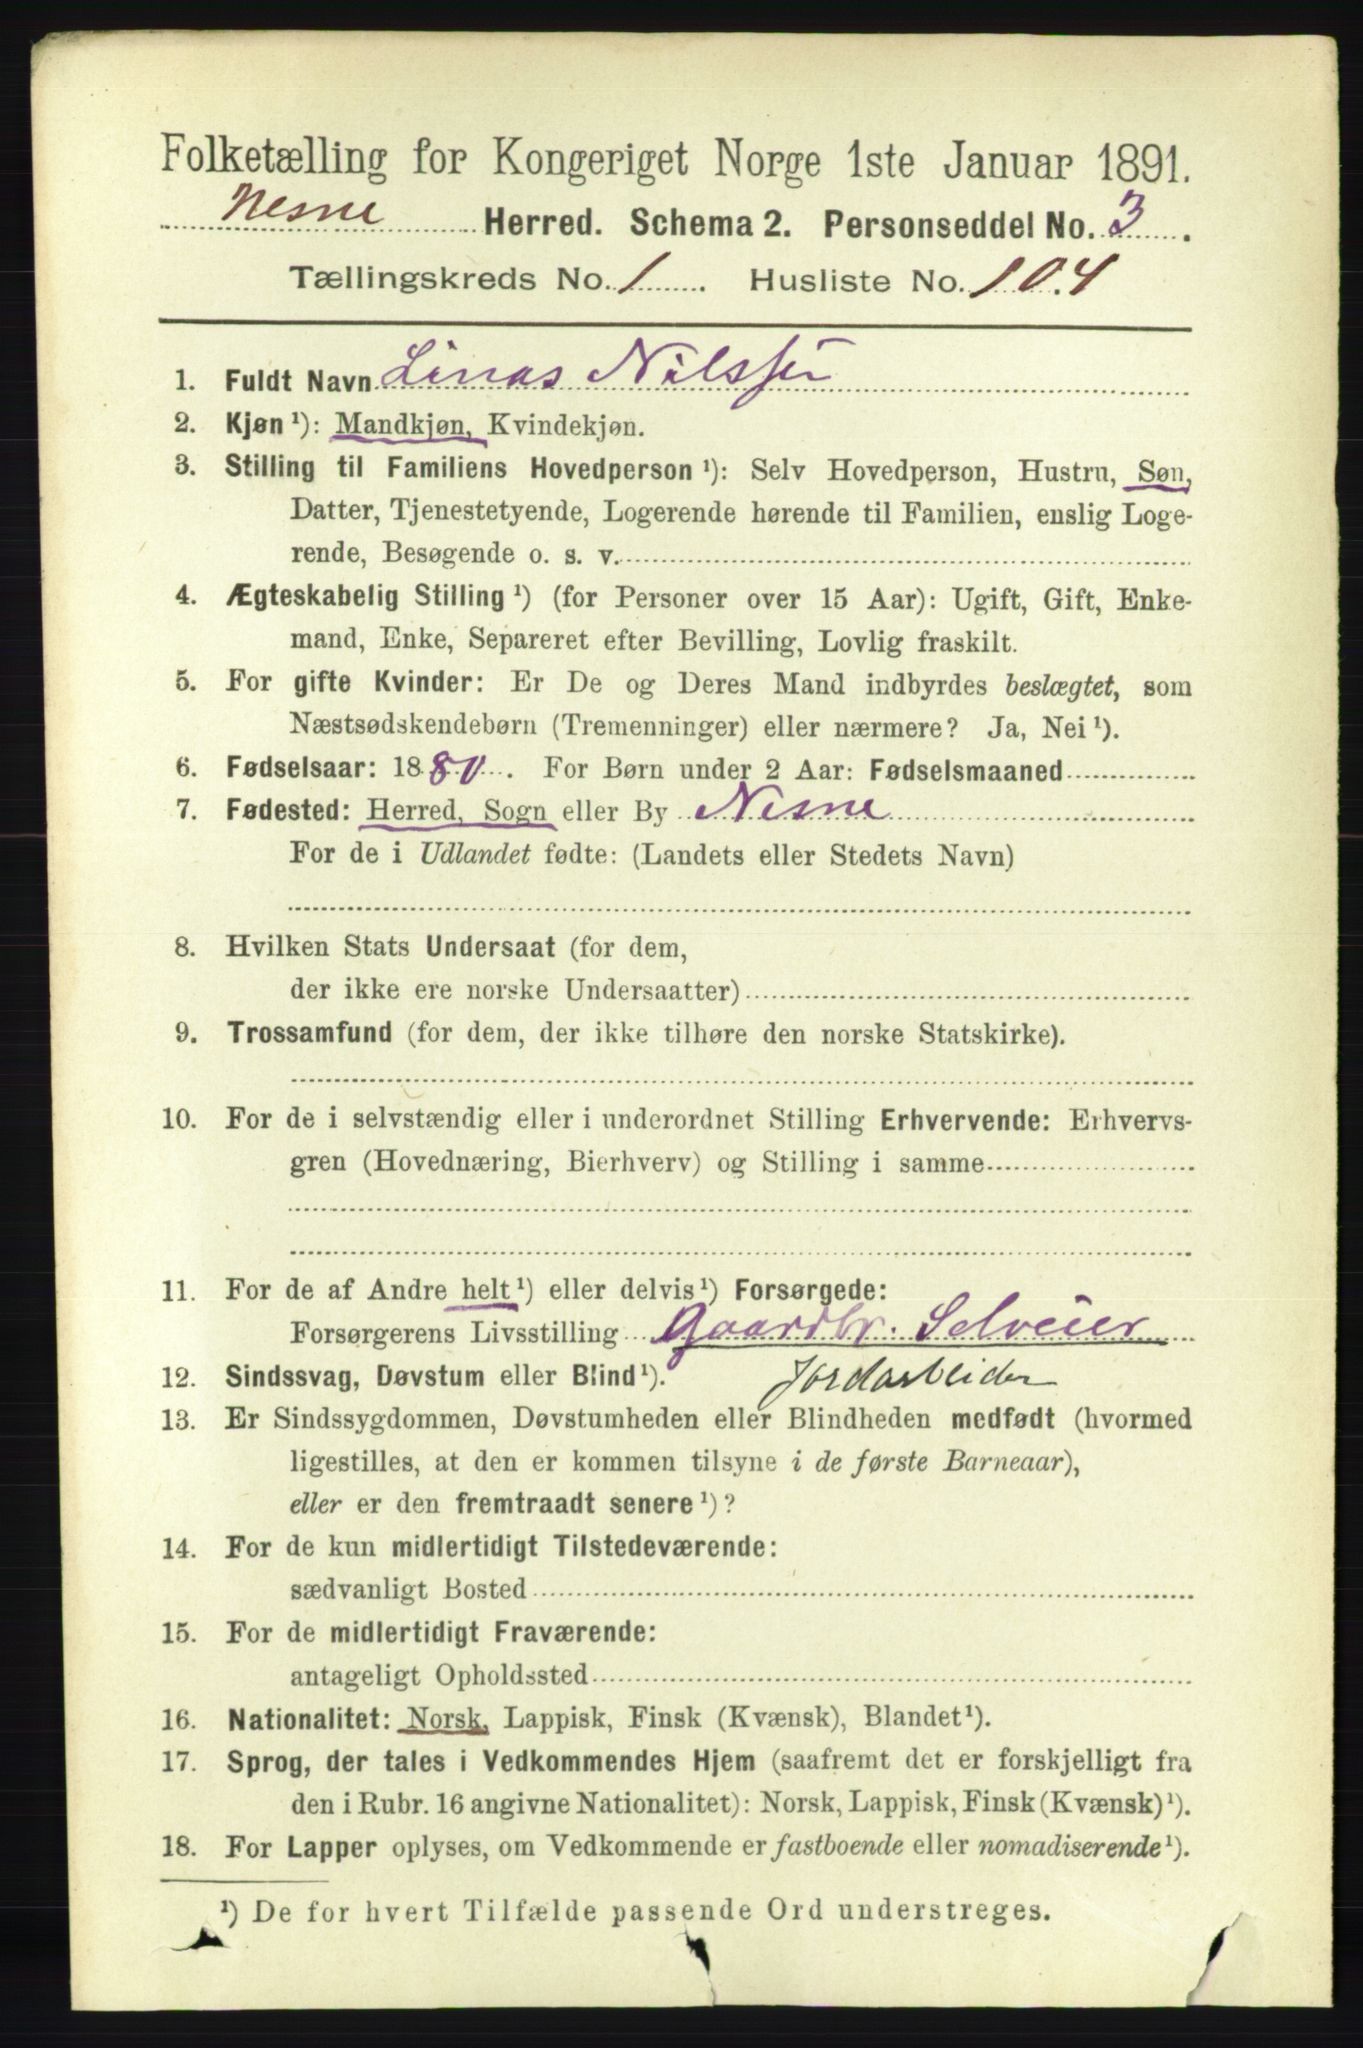 Folketælling for Kongeriget Norge 1ste Januar 1891.
Nesne Herred. Schema 2. Personseddel No. 3.
Tællingskreds No. 1. Husliste No. 104
1. Fuldt Navn Linas Nilssen
2. Kjøn ¹): Mandkjøn, Kvindekjøn.
3. Stilling til Familiens Hovedperson ¹): Selv Hovedperson, Hustru, Søn,
Datter, Tjenestetyende, Logerende hørende til Familien, enslig Loge-
rende, Besøgende o. s. v.
4. Ægteskabelig Stilling ¹) (for Personer over 15 Aar): Ugift, Gift, Enke-
mand, Enke, Separeret efter Bevilling, Lovlig fraskilt.
5. For gifte Kvinder: Er De og Deres Mand indbyrdes beslægtet, som
Næstsødskendebørn (Tremenninger) eller nærmere? Ja, Nei ¹).
6. Fødselsaar: 1880. For Børn under 2 Aar: Fødselsmaaned
7. Fødested: Herred, Sogn eller By Nesne
For de i Udlandet fødte: (Landets eller Stedets Navn)
8. Hvilken Stats Undersaat (for dem,
der ikke ere norske Undersaatter)
9. Trossamfund (for dem, der ikke tilhøre den norske Statskirke).
10. For de i selvstændig eller i underordnet Stilling Erhvervende: Erhvervs-
gren (Hovednæring, Bierhverv) og Stilling i samme
11. For de af Andre helt ¹) eller delvis ¹) Forsørgede:
Forsørgerens Livsstilling Gaardbr. Selveier
12. Sindssvag, Døvstum eller Blind ¹). Jordarbeider
13. Er Sindssygdommen, Døvstumheden eller Blindheden medfødt (hvormed
ligestilles, at den er kommen tilsyne i de første Barneaar),
eller er den fremtraadt senere ¹)?
14. For de kun midlertidigt Tilstedeværende:
sædvanligt Bosted
15. For de midlertidigt Fraværende:
antageligt Opholdssted
16. Nationalitet: Norsk, Lappisk, Finsk (Kvænsk), Blandet ¹).
17. Sprog, der tales i Vedkommendes Hjem (saafremt det er forskjelligt fra
den i Rubr. 16 angivne Nationalitet): Norsk, Lappisk, Finsk (Kvænsk) ¹).
18. For Lapper oplyses, om Vedkommende er fastboende eller nomadiserende ¹).
¹) De for hvert Tilfælde passende Ord understreges.